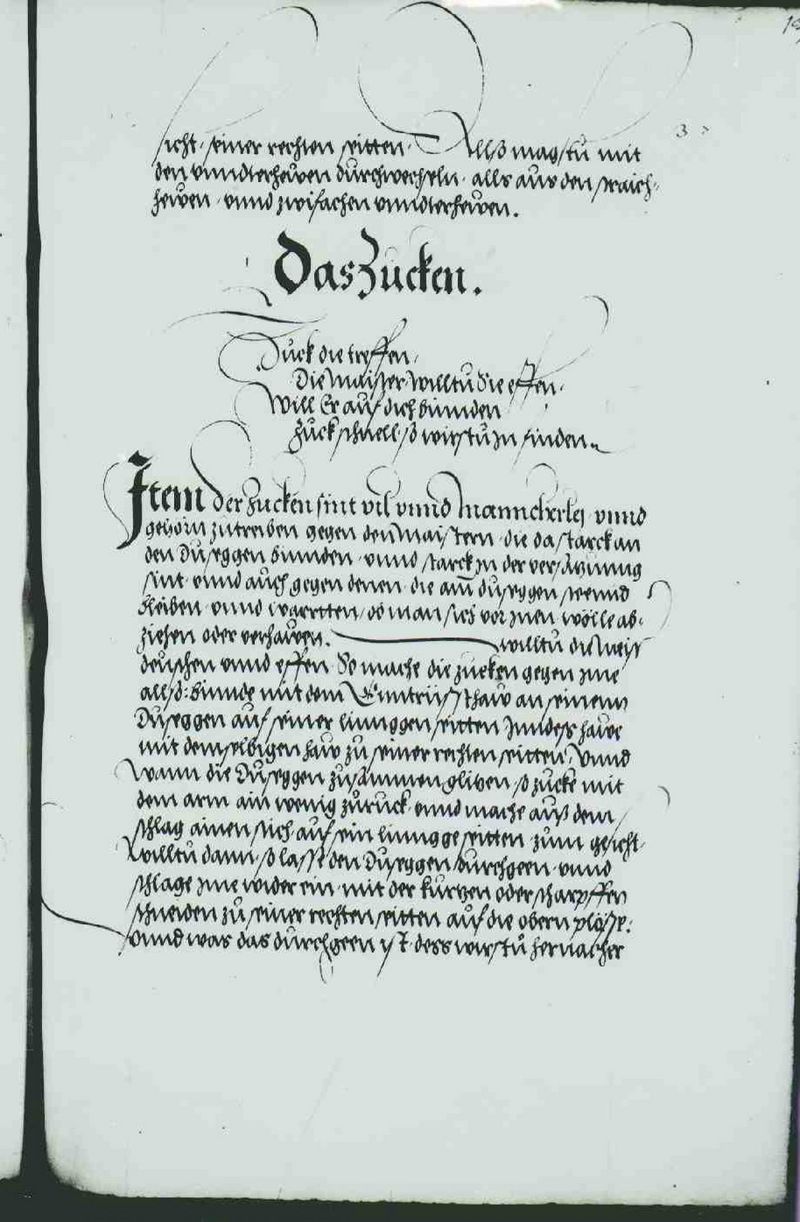 sicht seiner rechten seitten. Allso magstu mit
den unndterhewen durchwechseln. alls aus den straich-
hewen. unnd zwifachen unndterhewen.
Das Zucken.
Zuck die treffen,
Die Maister willtu die effen.
Will Er auf dich binnden
Zuck schnell, so wirstu In finden
Item der Zucken sint vil unnd Manncherley unnd
gehörn zutreiben gegen den Maistern die da starck an
den Duseggen binnden. unnd starck In der versatzung
sint. unnd auch gegen denen. die am Duseggen steennd
bleiben. unnd wartten, ob man sich vor Inen wölle ab-
ziehen oder verhawen. willtu die Meist
deuschen unnd effen. So mache die zucken gegen Ine
allso: binnde mit dem Enntrüssthaw an seinem
Duseggen auf seiner linnggen seitten Inndess hawe
mit demselbigen haw zu seiner rechten seitten, Unnd
Wann die Duseggen zusammen gliben, so zucke mit
dem arm ain wenig zuruck. unnd mache auß dem
schlag ainen stich auf sein linngge seitten zum gesicht.
Willtu dann, so lasst den Duseggen durchgeen. unnd
schlage Ime wider ein. mit der kurtzen oder scharpffen
schneiden zu seiner rechten seitten auf die obern plöss.
Unnd was das durchgeen ist. dess wirstu hernacher